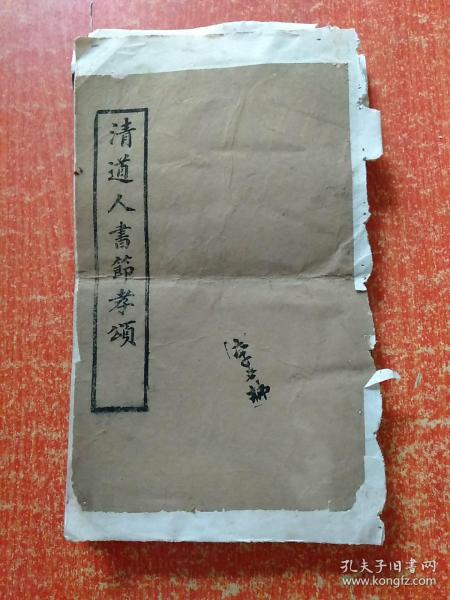 清道人書節孝頌
孔夫子旧书网
www.kongfz.com